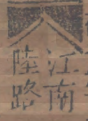 江南
陸路